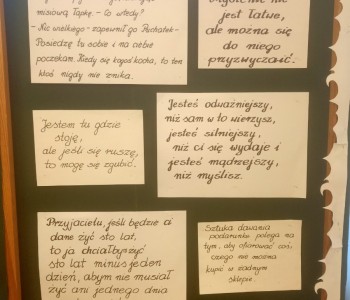 misiową łapkę. - Co wtedy?
- Nic wielkiego - zapewnił go Puchatek -
Posiedzę tu sobie i na ciebie
poczekam. Kiedy się kogoś kocha, to ten
ktoś nigdy nie znika.
nie
jest łatwe,
ale można się
do niego
przyzwyczaić.
Jestem tu gdzie
stoję,
ale jeśli się ruszę,
to mogę się zgubić.
Jesteś odważniejszy,
niż sam w to wierzysz,
jesteś silniejszy,
niż ci się wydaje i
jesteś mądrzejszy,
niż myślisz.
Przyjacielu, jeśli będzie ci
dane żyć sto lat,
to ja chciałbym żyć
sto lat minus jeden
dzień, abym nie musiał
żyć ani jednego dnia
Sztuka dawania
podarunku polega na
tym, aby ofiarować coś,
czego nie można
kupić w żadnym
sklepie.